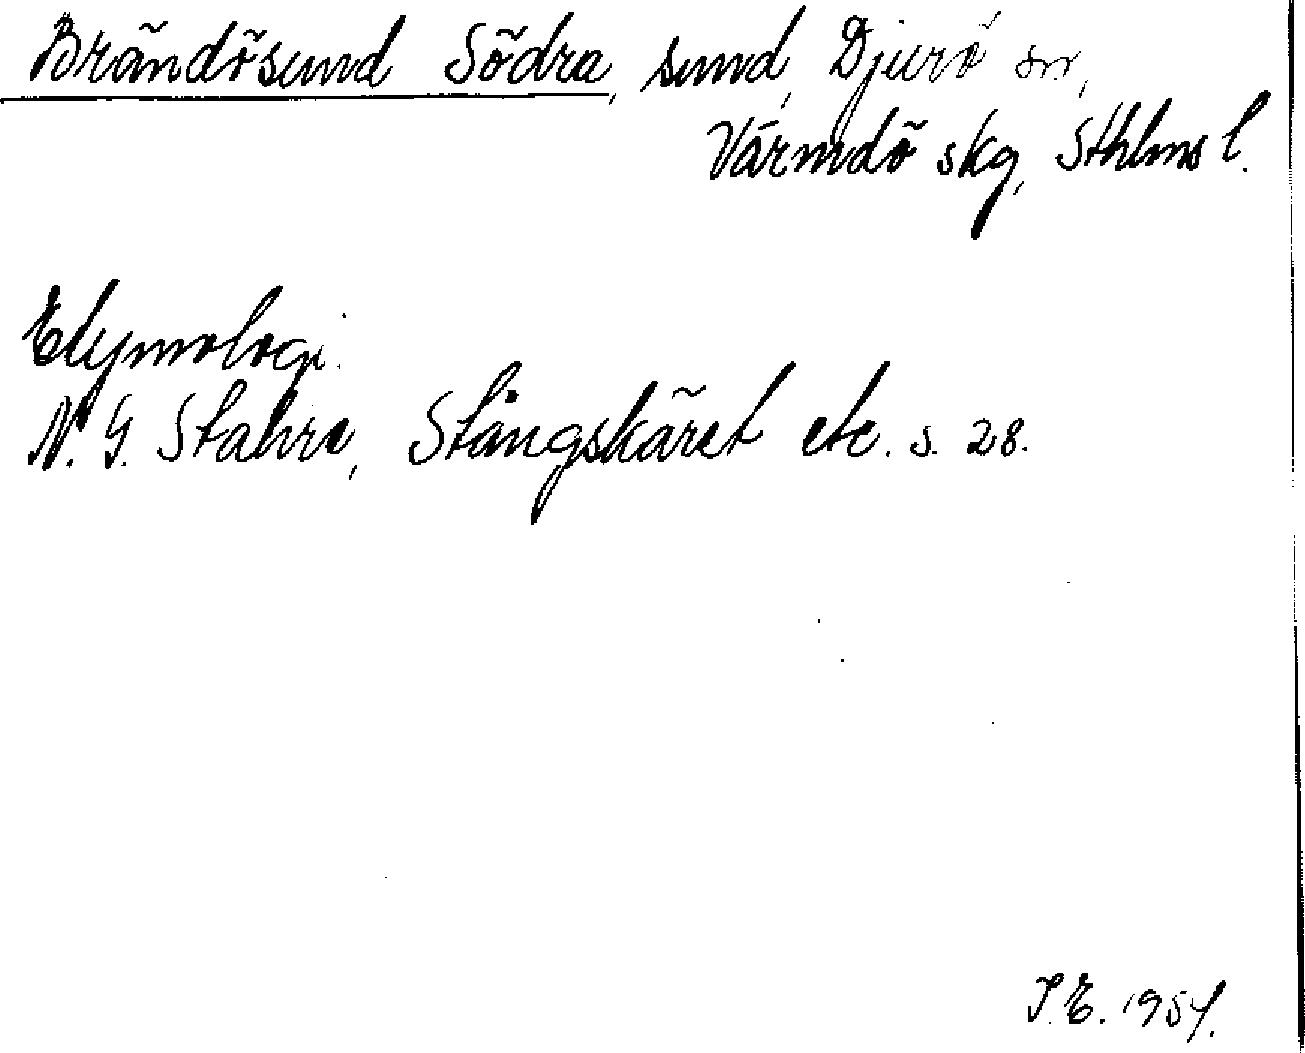 Brändösund Södra, sund, Djurö sn,
Värmdö skg, Sthlms l.
Etymologi.
N. G. Stahre, Stångskäret etc. s. 28.
I. E. 1954.